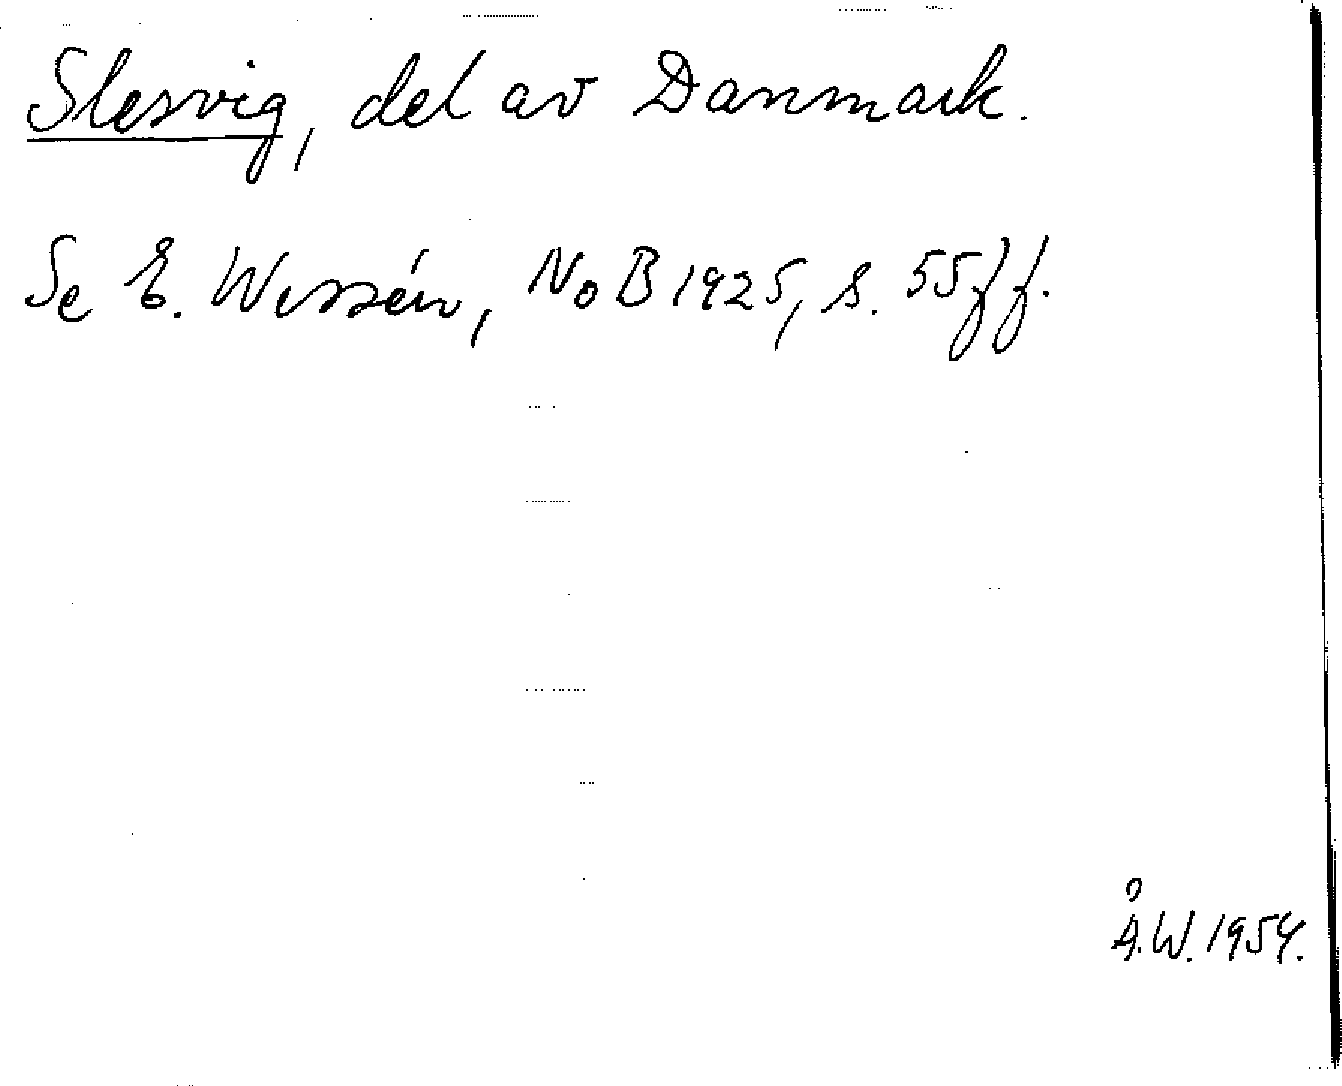 Slesvig, del av Danmark.
Se E. Wessén, NoB 1925, s. 55ff.
Å.W. 1954.